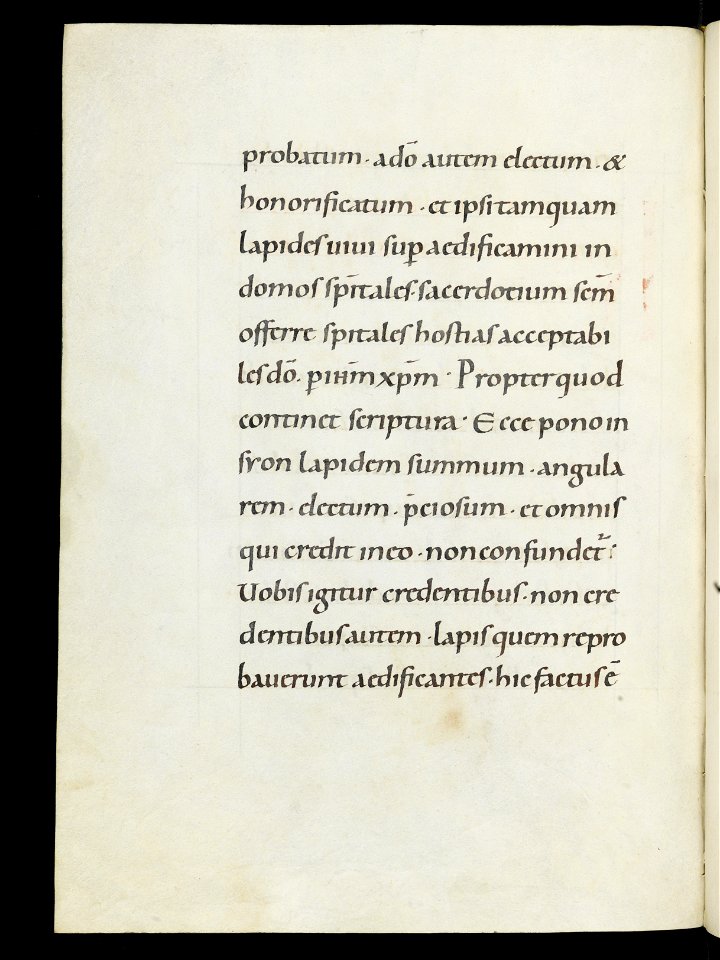 probatum · a dō autem electum · &
honorificatum · et ipsi tamquam
lapides uiui suꝑ aedificamini in
domos spī̄tales · sacerdotium sc̄m
offerre spītales hostias acceptabi
les dō · ꝑ ihm̄ xp̄m · Propter quod
continet scriptura · Ecce pono in
syon lapidem summum · angula
rem · electum · p̄ciosum · et omnis
qui credit in eo · non confundet᷑ ·
Uobis igitur credentibus · non cre
dentibus autem · lapis quem repro
bauerunt aedificantes · hic factus ē